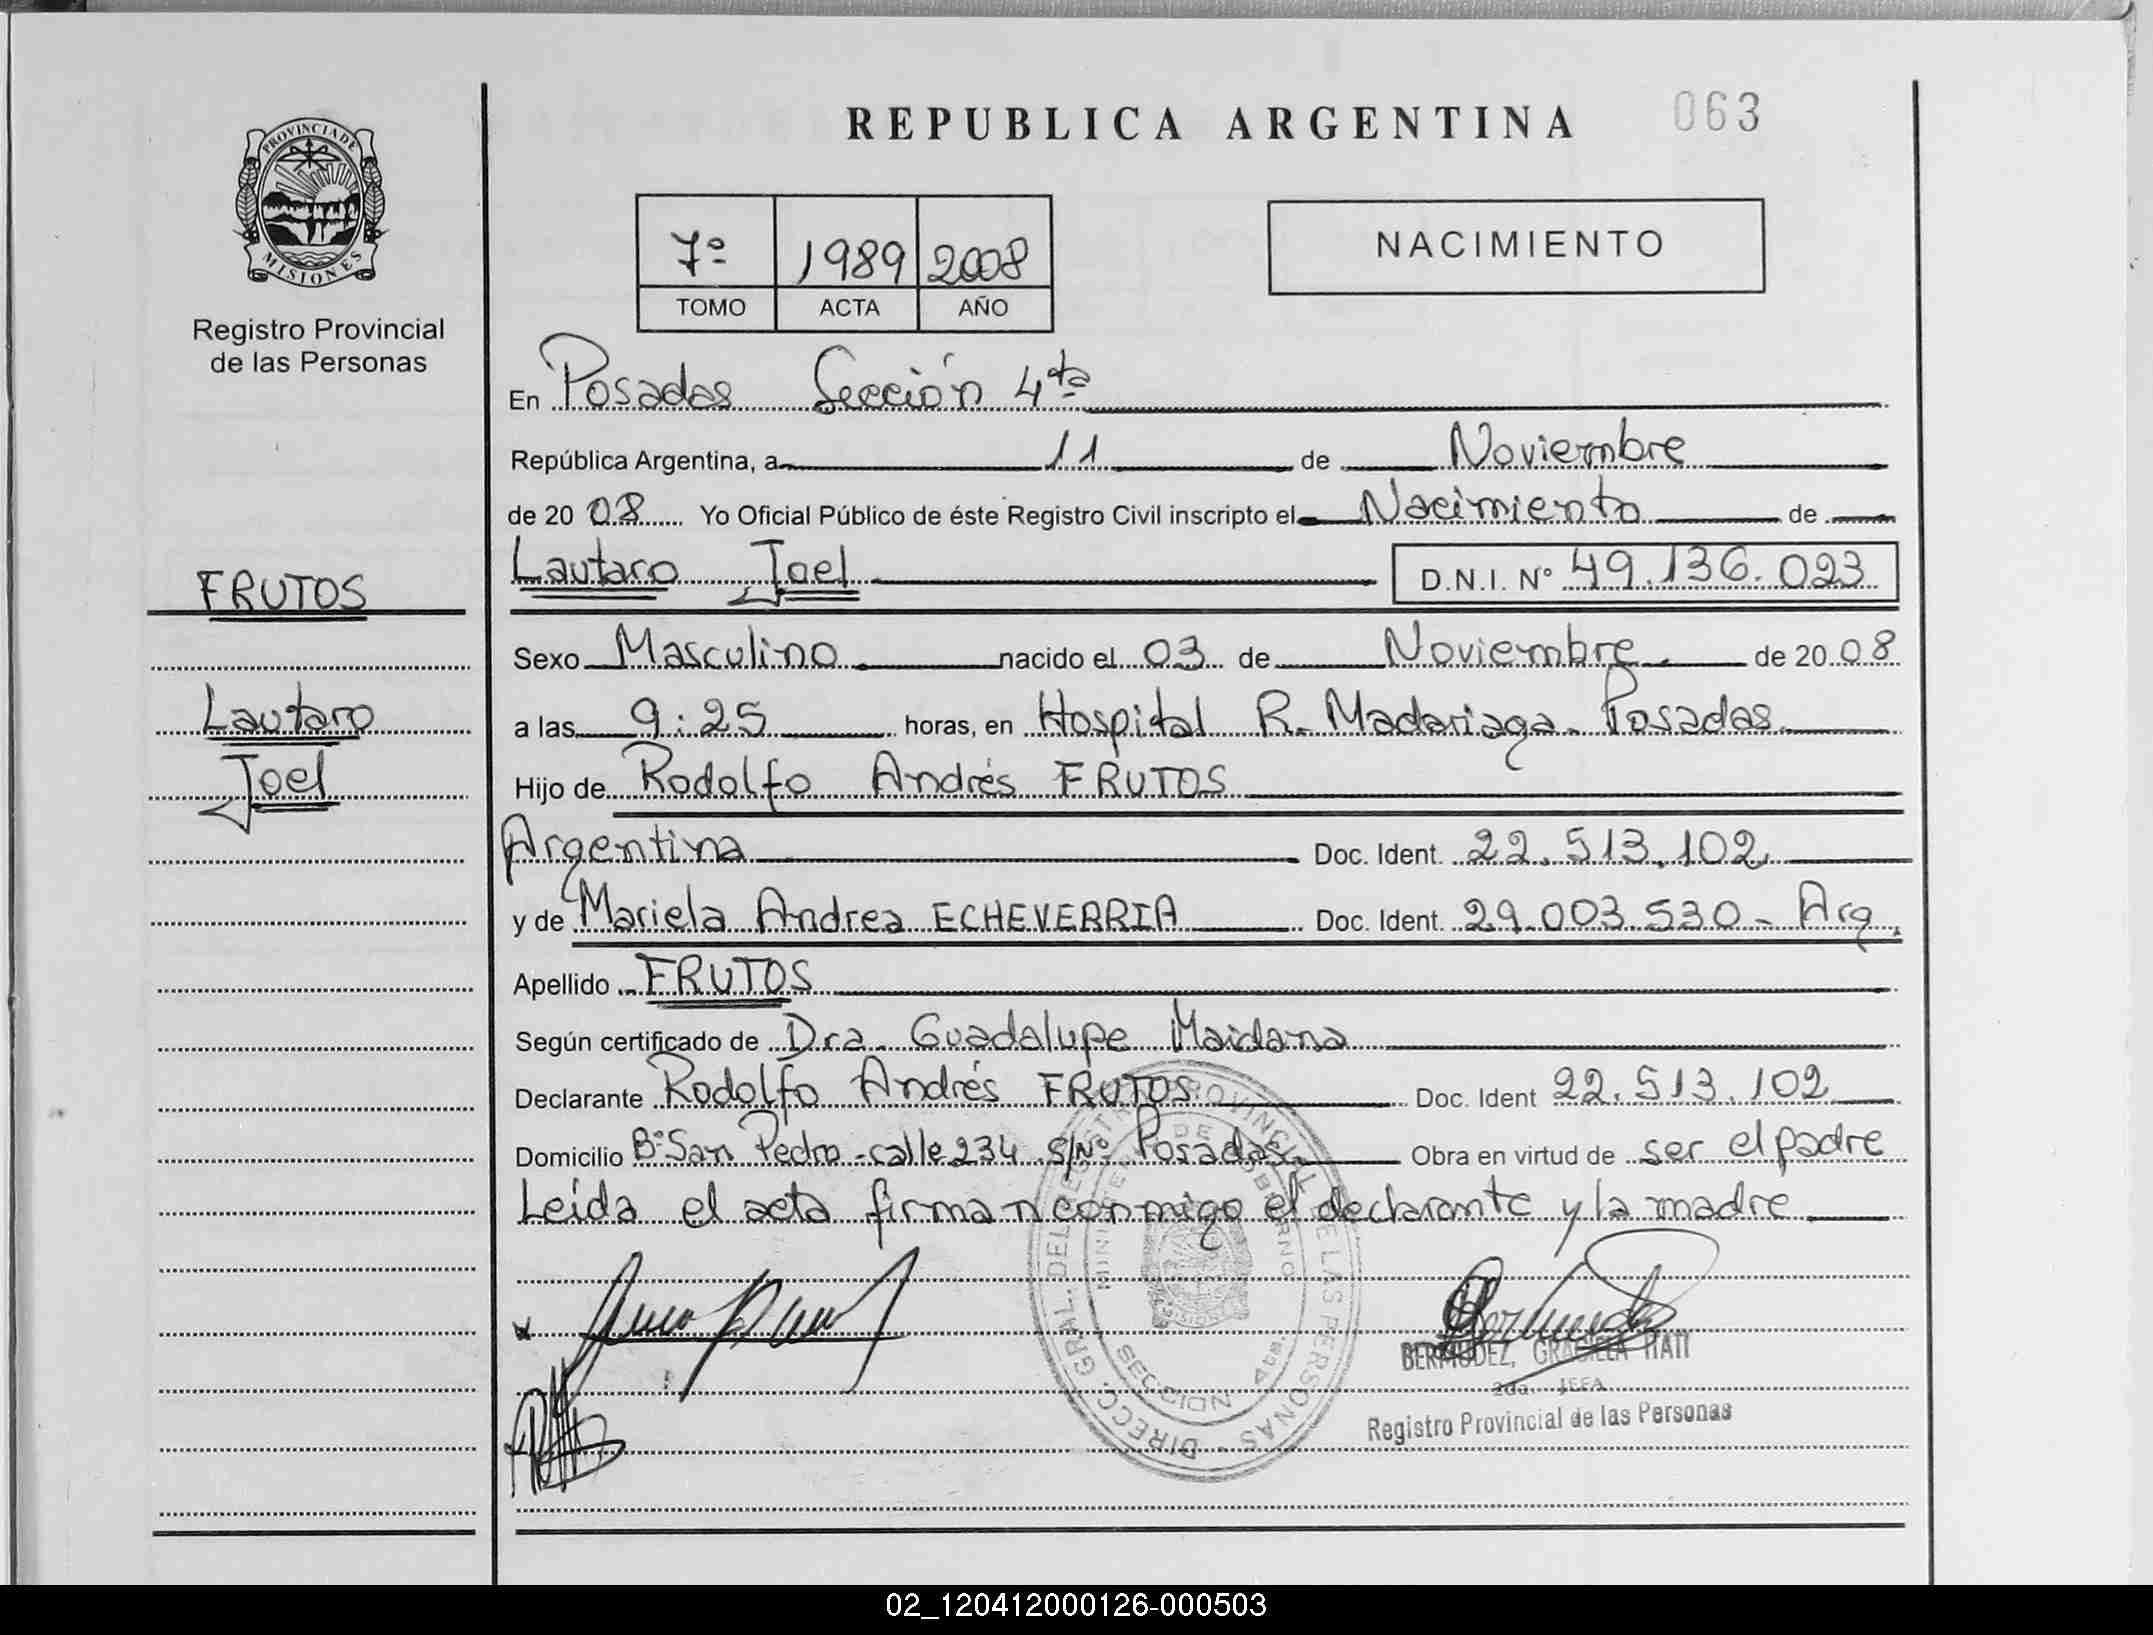 REPUBLICA ARGENTINA
063
PROVINCIA DE
MISIONES
Registro Provincial
de las Personas
7º 1989 2008
TOMO ACTA AÑO
NACIMIENTO
En Posadas Sección 4ta
República Argentina, a 11 de Noviembre
de 20 08 Yo Oficial Público de éste Registro Civil inscripto el Nacimiento de
Lautaro Joel D.N.I. Nº 49.136.023
FRUTOS
Lautaro
Joel
Sexo Masculino nacido el 03 de Noviembre de 20 08
a las 9:25 horas, en Hospital R. Madariaga. Posadas
Hijo de Rodolfo Andrés FRUTOS
Argentina Doc. Ident. 22.513.102
y de Mariela Andrea ECHEVERRIA Doc. Ident. 29.003.530 - Arg.
Apellido FRUTOS
Según certificado de Dra. Guadalupe Maidana
Declarante Rodolfo Andrés FRUTOS Doc. Ident 22.513.102
Domicilio Bº San Pedro - calle 234 S/Nº Posadas Obra en virtud de ser el padre
Leida el acta firman conmigo el declarante y la madre
DIRECC. GRAL. DEL REGISTRO PROVINCIAL DE LAS PERSONAS
MINIST. DE GOBIERNO
MISIONES
SECCION 4ta.
BERMUDEZ, GRACIELA ITATI
2da. JEFA
Registro Provincial de las Personas
02_120412000126-000503